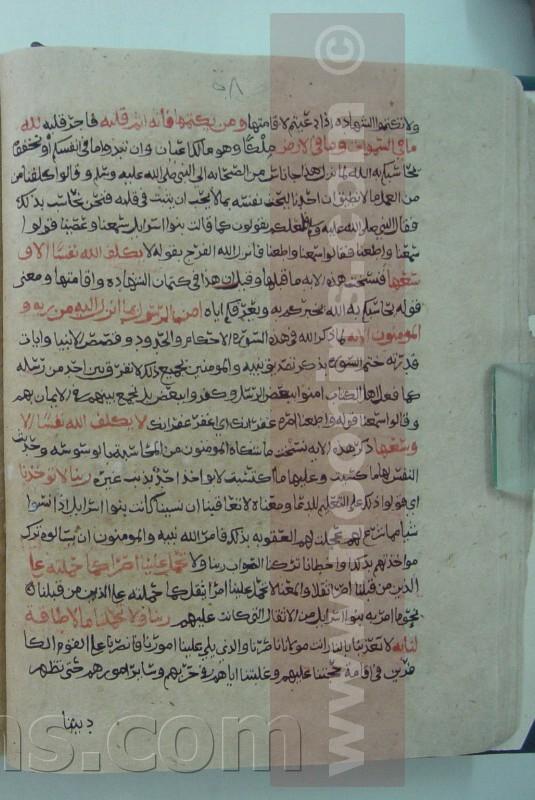 ٥٨
ولا تكتموا الشهادة اذا دعيتم لاقامتها ومن يكتمها فأنه اثم قلبه فاجر قلبه لله
ما في السموات وما في الارض ملكا وهو مالك اعيان وان تبدوا ما في انفسكم أو تخفوه
يحاسبكم به الله لما نزل هذا جا ناس من الصحابة الى النبي صلى الله عليه وسلم وقالوا كلفنا من
العمل ما لا نطيق ان احدنا ليحدث نفسه بما لا يحب ان يثبت في قلبه فنحن نحاسب بذلك
فقال النبي صلى الله عليه وسلم فلعلكم تقولون كما قالت بنوا اسرايل سمعنا وعصينا قولوا
سمعنا واطعنا فقالوا سمعنا واطعنا فانزل الله الفرج بقوله لا يكلف الله نفسا الا و
سعها فنسخت هذه الاية ما قبلها وقيل ان هذا في كتمان الشهادة واقامتها ومعنى
قوله يحاسبكم به الله يخبركم به ويعرفكم اياه امن الرسول بما انزل اليه من ربه و
المومنون الاية لما ذكر الله في هذه السورة الاحكام والحدود وقصص الانبيا وايات
قدرته ختم السورة بذكر تصديق نبيه والمومنين بجميع ذلك لا نفرق بين احد من رسله
كما فعل اهل الكتاب امنوا ببعض الرسل وكفروا ببعض بل نجمع بينهم في الايمان بهم
وقالوا سمعنا قوله واطعنا امره غفرانك اي اغفر غفرانك لا يكلف الله نفسا الا
وسعها ذكر هذه الاية نسخت ما شكاه المومنون من المحاسبة بما توسوس به وحديث
النفس لها ما كسبت وعليها ما اكتسبت لا يواخذ احد بذنب غيره ربنا لا تواخذنا
اي قولوا ذلك على التعليم للدعا ومعناه لا تعاقبنا ان نسينا كانت بنوا اسرايل اذا نسوا
شيا مما شرع لهم عجلت لهم العقوبة بذلك فامر الله نبيه والمومنون ان يسالوه ترك
مواخذتهم بذلك او اخطانا تركنا الصواب ربنا ولا تحمل علينا اصرا كما حملته على
الذين من قبلنا اصرا ثقلا والمعنا لا تحمل علينا امرا يثقل كما حملته على الذين من قبلنا
نحو ما امر به بنوا اسرايل من الاثقال التي كانت عليهم ربنا ولا تحملنا ما لا طاقة
لنا به لا تعذبنا بالنار انت مولانا ناصرنا والذي يلي علينا امورنا فانصرنا على القوم الكا
فرين في اقامة حجتنا عليهم وغلبتنا اياهم في حربهم وساير امورهم حتى تظهر
ديننا
www.
ns.com
©